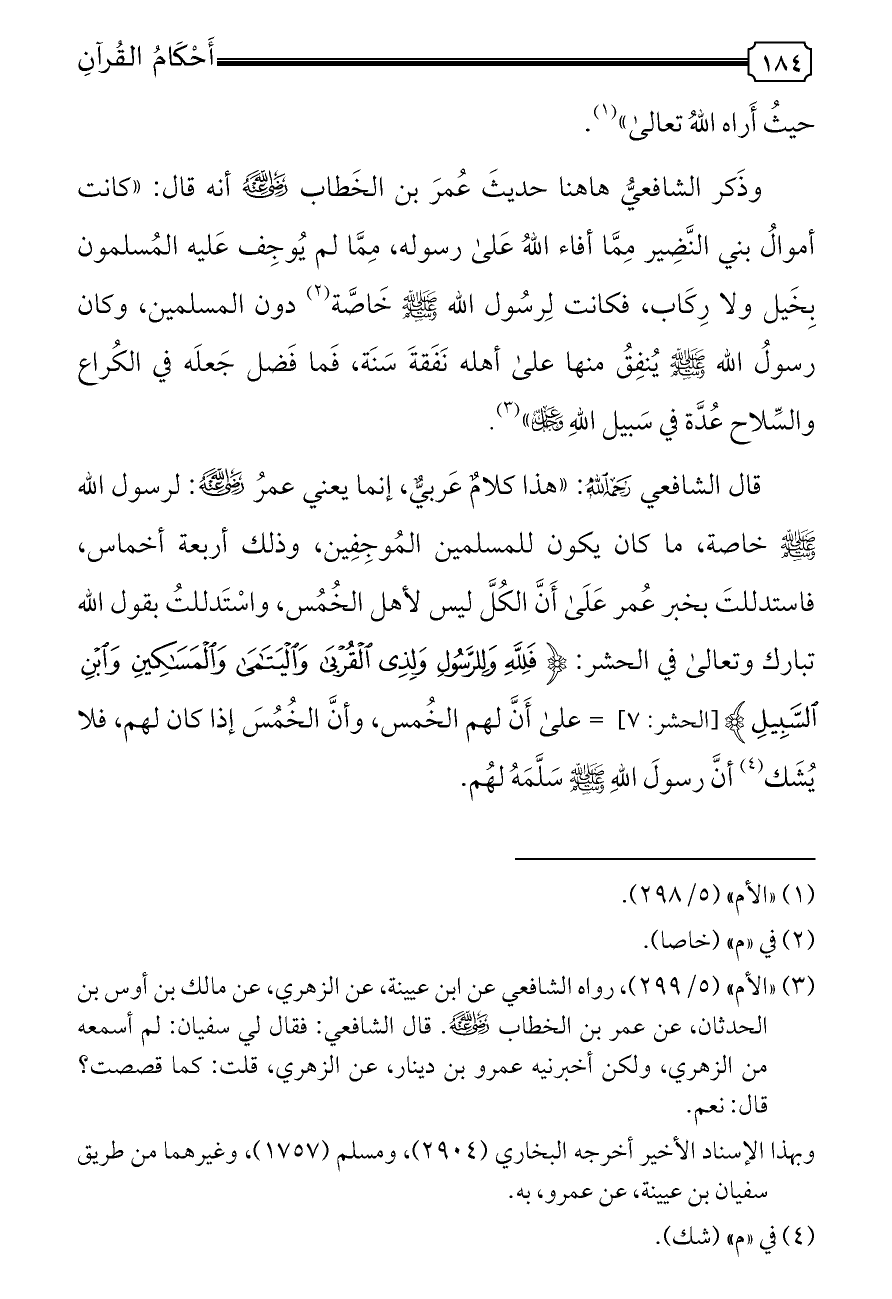 ١٨٤ أَحْكَامُ القُرآنِ
حيثُ أَراه اللهُ تعالىٰ»(١).
وذَكر الشافعيُّ هاهنا حديثَ عُمرَ بن الخَطاب رَضِيَ اللَّهُ عَنْهُ أنه قال: «كانت
أموالُ بني النَّضِير مِمَّا أفاء اللهُ عَلىٰ رسوله، مِمَّا لم يُوجِف عَليه المُسلمون
بِخَيل ولا رِكَاب، فكانت لِرسُول الله ﷺ خَاصَّة(٢) دون المسلمين، وكان
رسولُ الله ﷺ يُنفِقُ منها علىٰ أهله نَفَقةَ سَنَة، فَما فَضل جَعلَه في الكُراع
والسِّلاح عُدَّة في سَبيل اللهِ عَزَّ وَجَلَّ»(٣).
قال الشافعي رَحِمَهُ اللَّهُ: «هذا كلامٌ عَربيٌّ، إنما يعني عمرُ رَضِيَ اللَّهُ عَنْهُ: لرسول الله
ﷺ خاصة، ما كان يكون للمسلمين المُوجِفِين، وذلك أربعة أخماس،
فاستدللتَ بخبر عُمر عَلَىٰ أَنَّ الكُلَّ ليس لأهل الخُمُس، واسْتَدللتُ بقول الله
تبارك وتعالىٰ في الحشر: ﴿ فَلِلَّهِ وَلِلرَّسُولِ وَلِذِى ٱلْقُرْبَىٰ وَٱلْيَتَـٰمَىٰ وَٱلْمَسَـٰكِينِ وَٱبْنِ
ٱلسَّبِيلِ ﴾ [الحشر: ٧] = علىٰ أَنَّ لهم الخُمس، وأنَّ الخُمُسَ إذا كان لهم، فلا
يُشَك(٤) أنَّ رسولَ اللهِ ﷺ سَلَّمَهُ لهُم.
(١) «الأم» (٥/ ٢٩٨).
(٢) في «م» (خاصا).
(٣) «الأم» (٥/ ٢٩٩)، رواه الشافعي عن ابن عيينة، عن الزهري، عن مالك بن أوس بن
الحدثان، عن عمر بن الخطاب رَضِيَ اللَّهُ عَنْهُ. قال الشافعي: فقال لي سفيان: لم أسمعه
من الزهري، ولكن أخبرنيه عمرو بن دينار، عن الزهري، قلت: كما قصصت؟
قال: نعم.
وبهذا الإسناد الأخير أخرجه البخاري (٢٩٠٤)، ومسلم (١٧٥٧)، وغيرهما من طريق
سفيان بن عيينة، عن عمرو، به.
(٤) في «م» (شك).